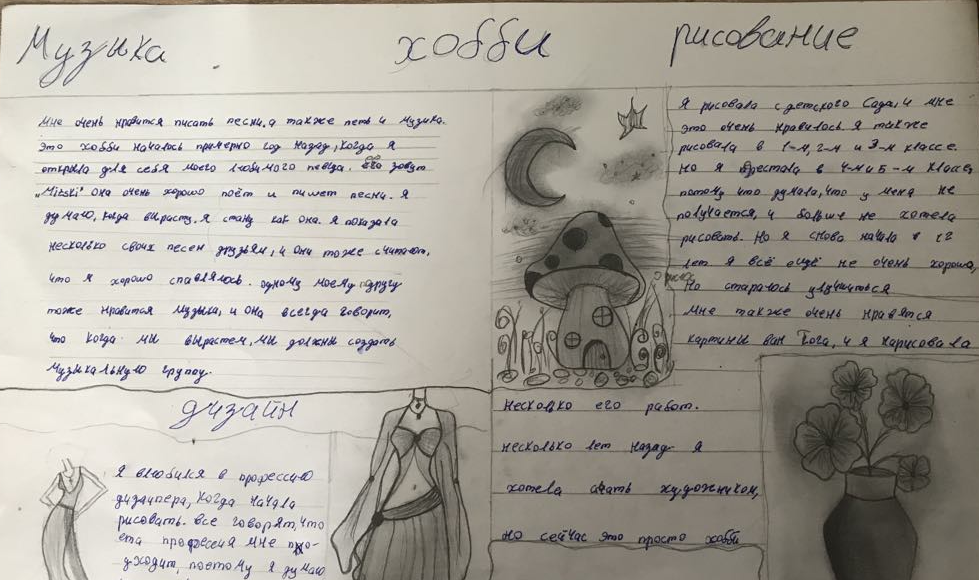 Музыка
хобби
рисование
Мне очень нравится писать песни, а также петь и музыка.
это хобби началось примерно год назад, когда я
открыла для себя моего любимого певца. его зовут
„Mitski" она очень хорошо поёт и пишет песни. я
думаю, когда вырасту, я стану как она. я показала
несколько своих песен друзьям, и они тоже считают,
что я хорошо справлялось. одному моему другу
тоже нравится музыка, и она всегда говорит,
что когда мы вырастем, мы должны создать
музыкальную групоу.
Я рисовала с детского Сада, и мне
это очень нравилось я также
рисовала в 1-м, 2-м и 3-м классе.
Но я перестала в 4-м и 5-м классе,
потому что думала, что у меня не
получается, и больше не хотела
рисовать. Но я снова начала в 12
лет. я всё ещё не очень хорошо,
но стараюсь улучшиться
мне также очень нравятся
картины ван Гога, и я нарисовала
несколько его работ.
несколько лет назад я
хотела стать художником,
но сейчас это просто хобби
дизайн
я влюбился в профессию
дизайнера, когда начала
рисовать. все говорят, что
ета профессия мне по-
дходит, поетому я думаю